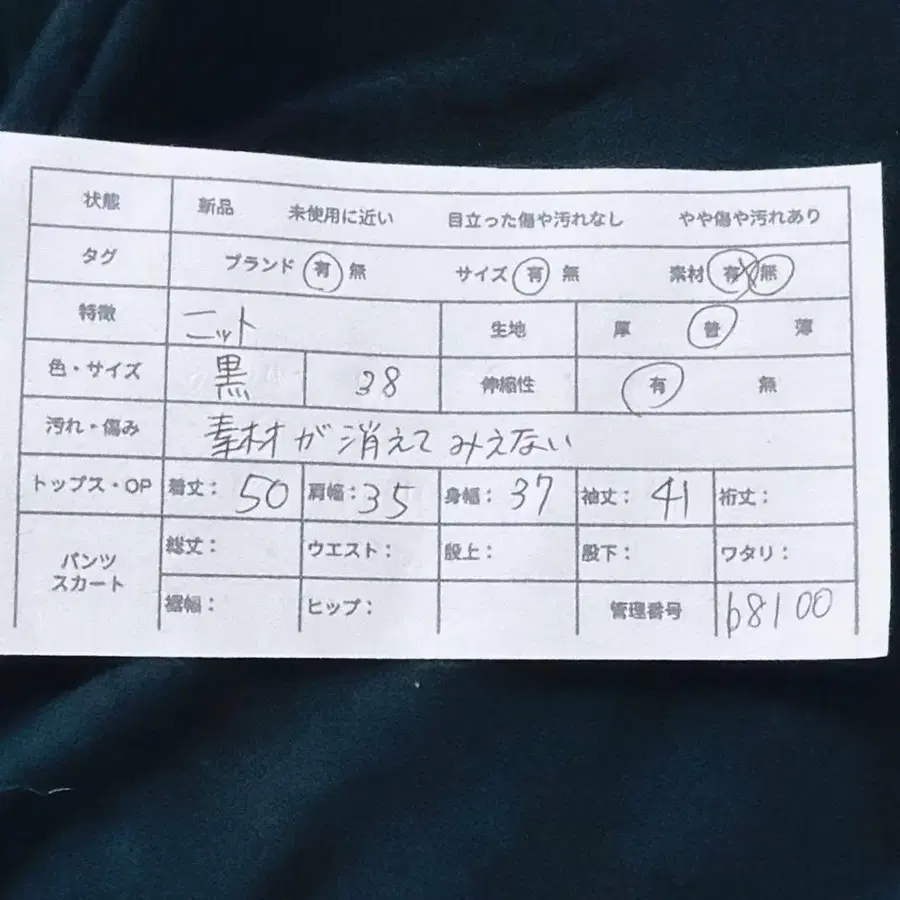 状態 新品 未使用に近い 目立った傷や汚れなし やや傷や汚れあり
タグ ブランド 有 無 サイズ 有 無 素材 有 無
特徴 ニット 生地 厚 普 薄
色・サイズ 黒 38 伸縮性 有 無
汚れ・傷み 素材が消えてみえない
トップス・OP 着丈: 50 肩幅: 35 身幅: 37 袖丈: 41 裄丈:
パンツ スカート 総丈: ウエスト: 股上: 股下: ワタリ:
裾幅: ヒップ: 管理番号 b8100